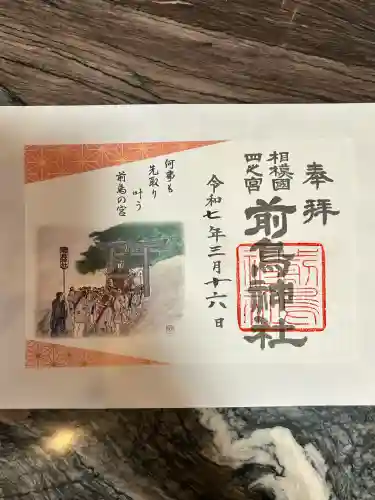 奉拝
相模國
四之宮
前鳥神社
令和七年三月十六日
何事も
先取り
叶う
前鳥の宮